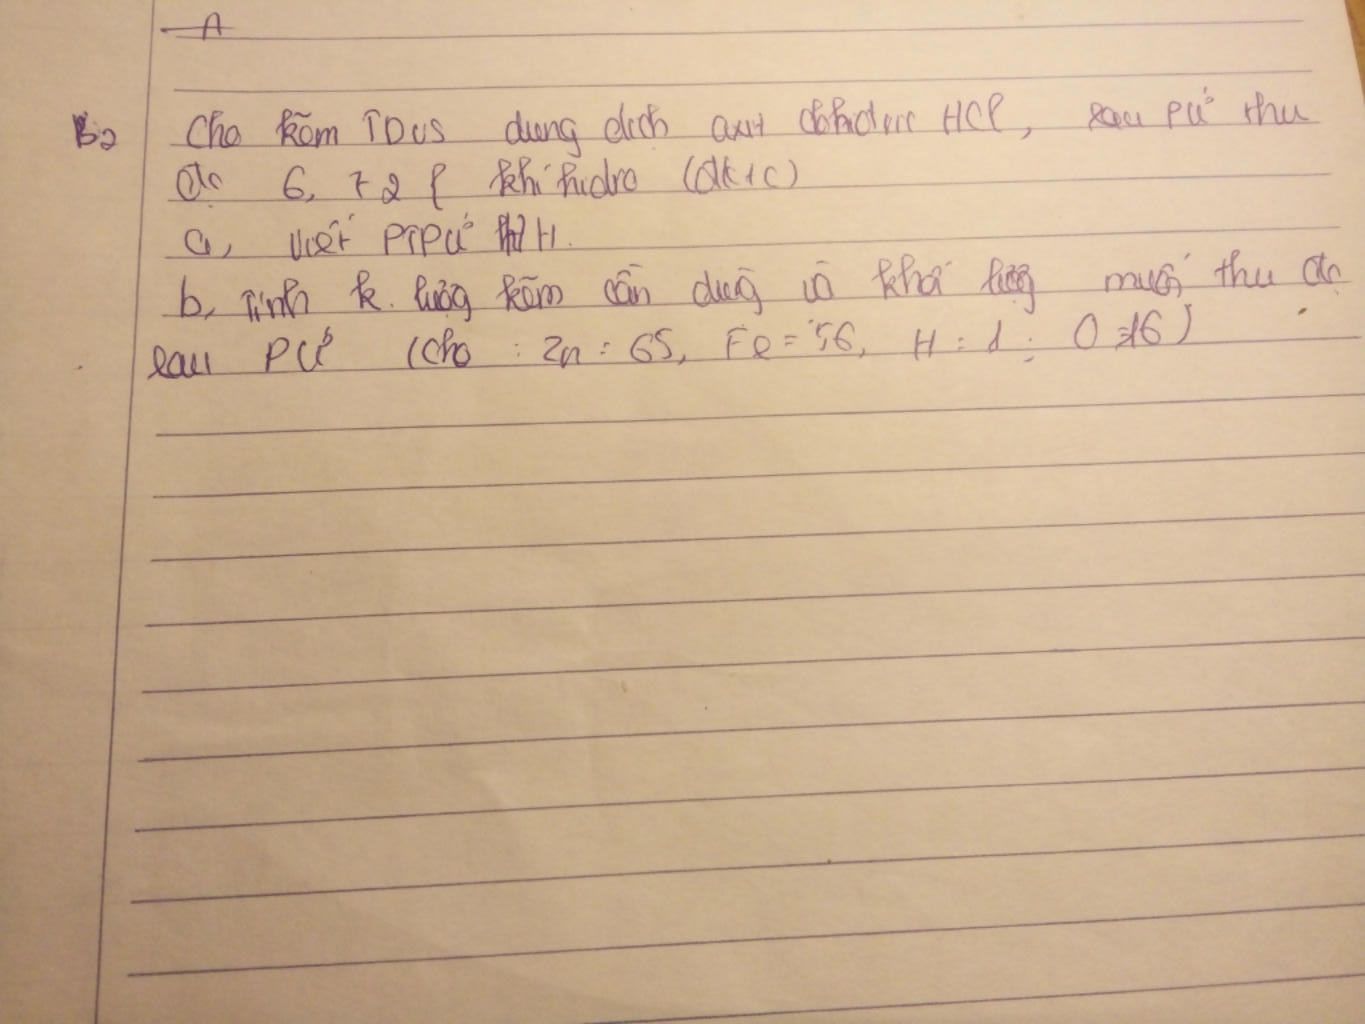 A
B2 Cho kẽm TDVS dung dịch axit clohidric HCl, sau PƯ thu
đc 6,72 l khí hidro (đktc)
a, viết PTPƯ H.
b, Tính k. lượng kẽm cần dùng và khối lượng muối thu đc
sau PƯ (Cho : Zn = 65, Fe = 56, H = 1 ; O = 16)